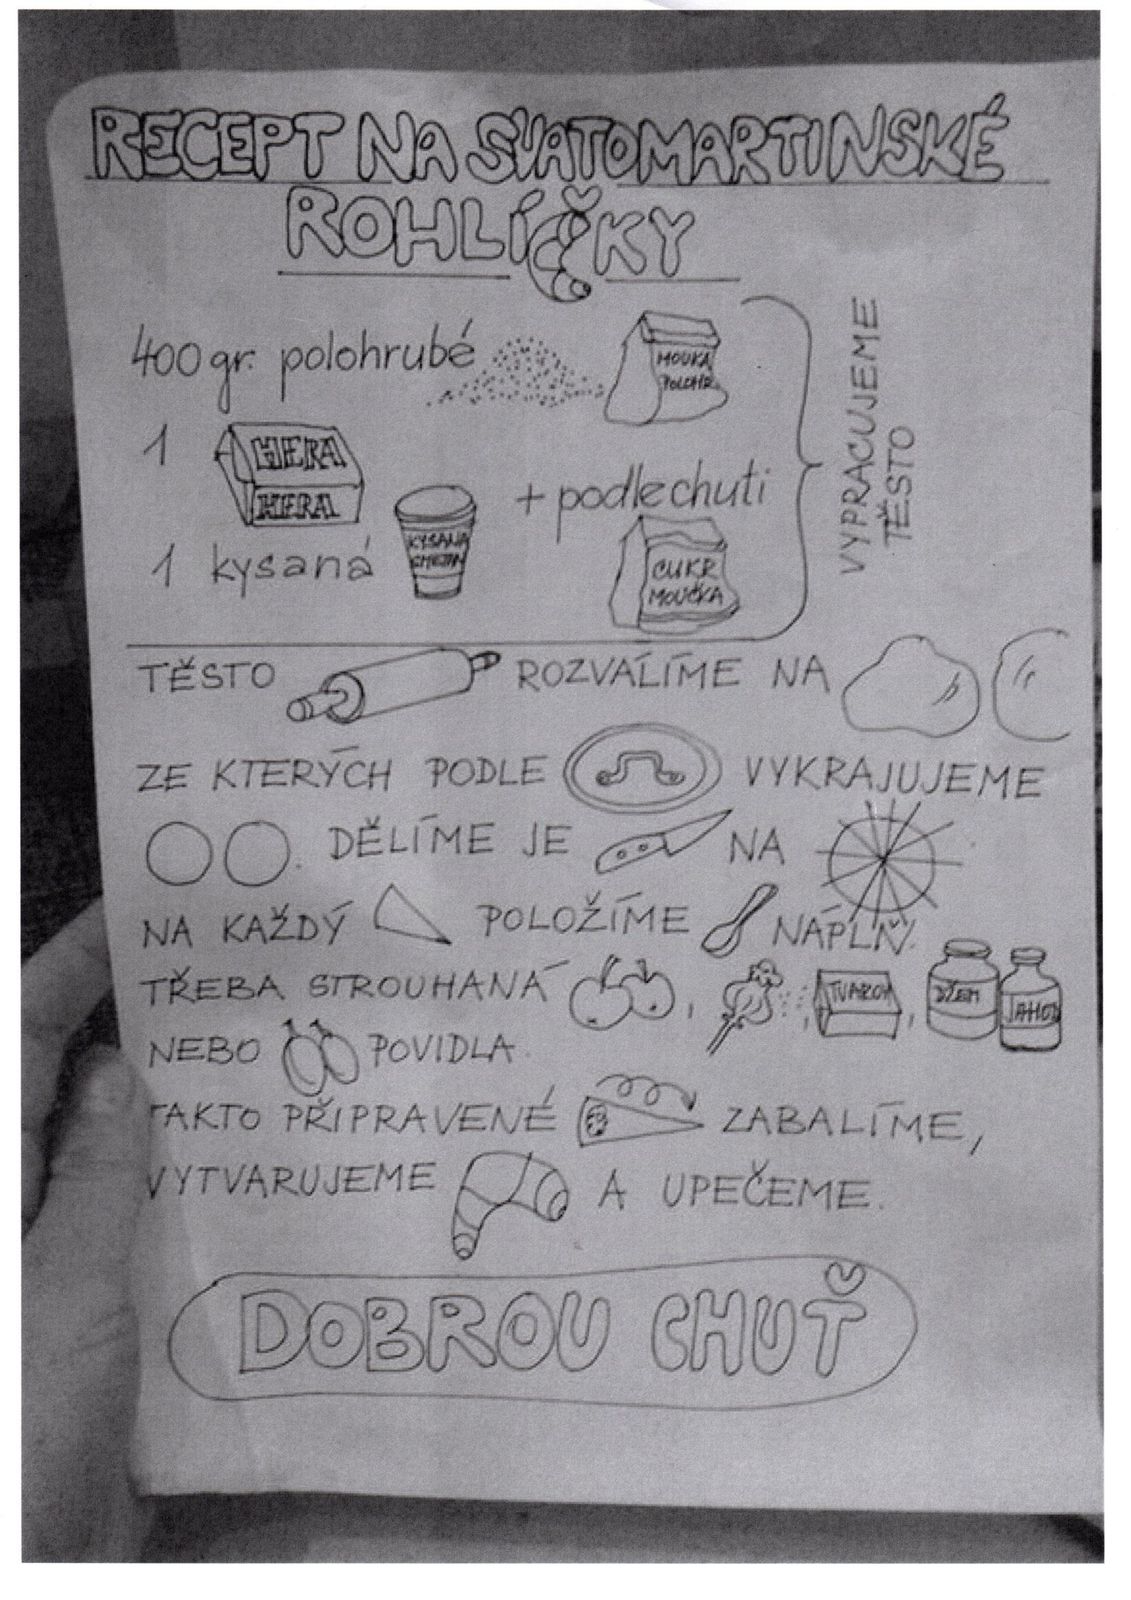 RECEPT NA SVATOMARTINSKÉ
ROHLÍČKY
400 gr. polohrubé
MOUKA
POLOHR.
1
HERA
HERA
+ podle chuti
1 kysaná
KYSANÁ
CUKR
MOUČKA
VYPRACUJEME
TĚSTO
TĚSTO ROZVÁLÍME NA
ZE KTERÝCH PODLE VYKRAJUJEME
. DĚLÍME JE NA
NA KAŽDÝ POLOŽÍME NÁPLŇ.
TŘEBA STROUHANÁ , , TVAROH , DŽEM
NEBO POVIDLA
TAKTO PŘIPRAVENÉ ZABALÍME,
VYTVARUJEME A UPEČEME.
DOBROU CHUŤ